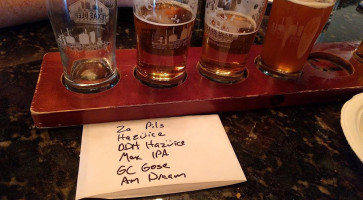 2a Pils
Hazüice
DDH Hazüice
Max IPA
GC Gose
Am Dream